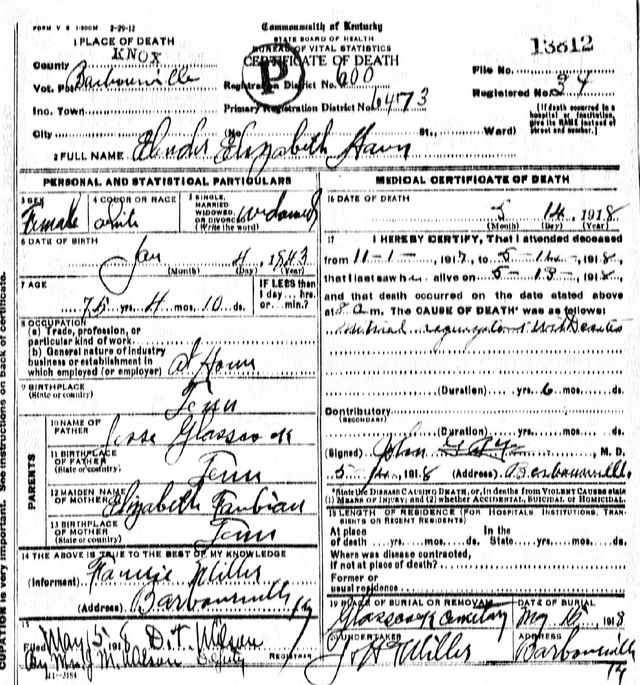 FORM V S 1-500M 2-29-12
Commonwealth of Kentucky
STATE BOARD OF HEALTH
BUREAU OF VITAL STATISTICS
CERTIFICATE OF DEATH
13812
1 PLACE OF DEATH
County KNOX
Vot. Pct. Barbourville
Inc. Town
City
Registration District No. 600
Primary Registration District No. 6473
File No.
Registered No. 34
(If death occurred in a hospital or institution, give its NAME instead of street and number.)
P
(No. St., Ward)
2 FULL NAME Elizabeth Hawn
PERSONAL AND STATISTICAL PARTICULARS
3 SEX Female
4 COLOR OR RACE white
5 SINGLE, MARRIED WIDOWED, OR DIVORCED (Write the word) widowed
6 DATE OF BIRTH
Jan 4, 1943
(Month) (Day) (Year)
7 AGE
75 yrs. 4 mos. 10 ds.
IF LESS than 1 day... hrs. or... min.?
8 OCCUPATION
(a) Trade, profession, or particular kind of work
(b) General nature of industry business or establishment in which employed (or employer) At Home
9 BIRTHPLACE
(State or country) Tenn
PARENTS
10 NAME OF FATHER Jesse Glasscock
11 BIRTHPLACE OF FATHER (State or country) Tenn
12 MAIDEN NAME OF MOTHER Elizabeth Faubian
13 BIRTHPLACE OF MOTHER (State or country) Tenn
14 THE ABOVE IS TRUE TO THE BEST OF MY KNOWLEDGE
(Informant) Fannie Miller
(Address) Barbourville Ky
15
Filed May 15, 1918 D. T. Wilson
By Mrs. J. M. Wilson Deputy REGISTRAR
11-3184
MEDICAL CERTIFICATE OF DEATH
16 DATE OF DEATH
5 14, 1918
(Month) (Day) (Year)
17 I HEREBY CERTIFY, That I attended deceased
from 11-1-, 1917, to 5-14-, 1918,
that I last saw her alive on 5-13-, 1918,
and that death occurred on the date stated above
at 8 a.m. The CAUSE OF DEATH* was as follows:
Mitral regurgitation
(Duration) yrs. 6 mos. ds.
Contributory
(SECONDARY)
(Duration) yrs. mos. ds.
(Signed) John, M. D.
5-14-, 1918 (Address) Barbourville
*State the DISEASE CAUSING DEATH, or, in deaths from VIOLENT CAUSES state (1) MEANS OF INJURY; and (2) whether ACCIDENTAL, SUICIDAL or HOMICIDAL.
18 LENGTH OF RESIDENCE (FOR HOSPITALS, INSTITUTIONS, TRANSIENTS OR RECENT RESIDENTS)
At place of death yrs. mos. ds. In the State yrs. mos. ds.
Where was disease contracted, if not at place of death?
Former or usual residence
19 PLACE OF BURIAL OR REMOVAL Glasscock Cemetery
DATE OF BURIAL May 15, 1918
20 UNDERTAKER J. H. Miller
ADDRESS Barbourville Ky
CUPATION is very important. See instructions on back of certificate.